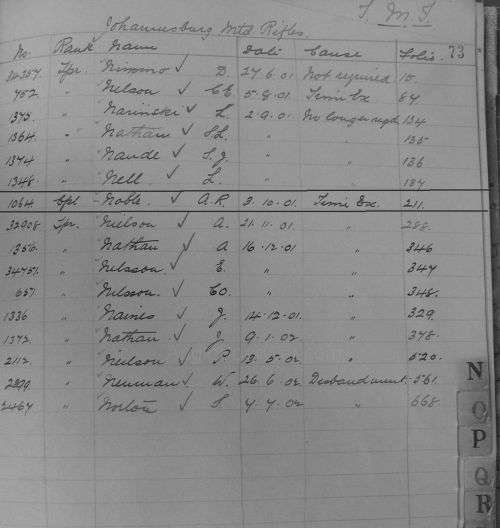 J. M. T.
Johannesburg Mtd Rifles.
No. Rank Name Date Cause Folio. 73
Tpr. Nimmo D. 27.6.01 Not required 15.
752 " Nelson CE. 5.8.01. Time Ex 84
1375. " Narinski L. 2.9.01. No longer reqd 134
1364. " Nathan SL. " " 135
1374 " Naude S.J. " " 136
1348. " Nell. L. " " 137
1064 Cpl - Noble. A.R. 3.10.01. Time Ex. 211.
32908 Tpr. Neilson A. 21.11.01. " 288.
356. " Nathan A 16.12.01 " 346
34751. " Nelsson E. " " 347
657. " Nelsson. CO. " " 348.
1336 " Names J. 14.12.01. " 329.
1372. " Nathan J. 9.1.02. " 378.
2112. " Neilson P. 13.5.02. " 520.
2899 " Neuman W. 26.6.02 Disbandment. 561.
2467 " Norton S. 4.7.02 " 668.
N
O
P
Q
R